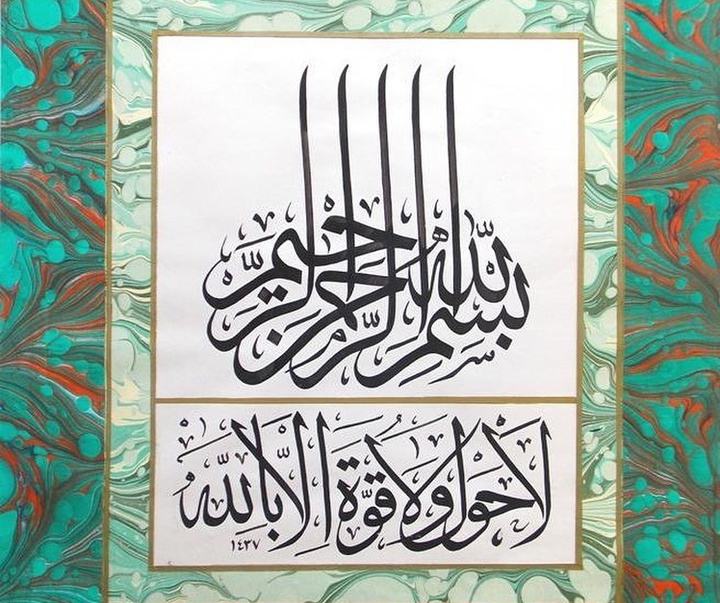 بسم الله الرحمن الرحيم
لا حول ولا قوة الا بالله
١٤٣٧